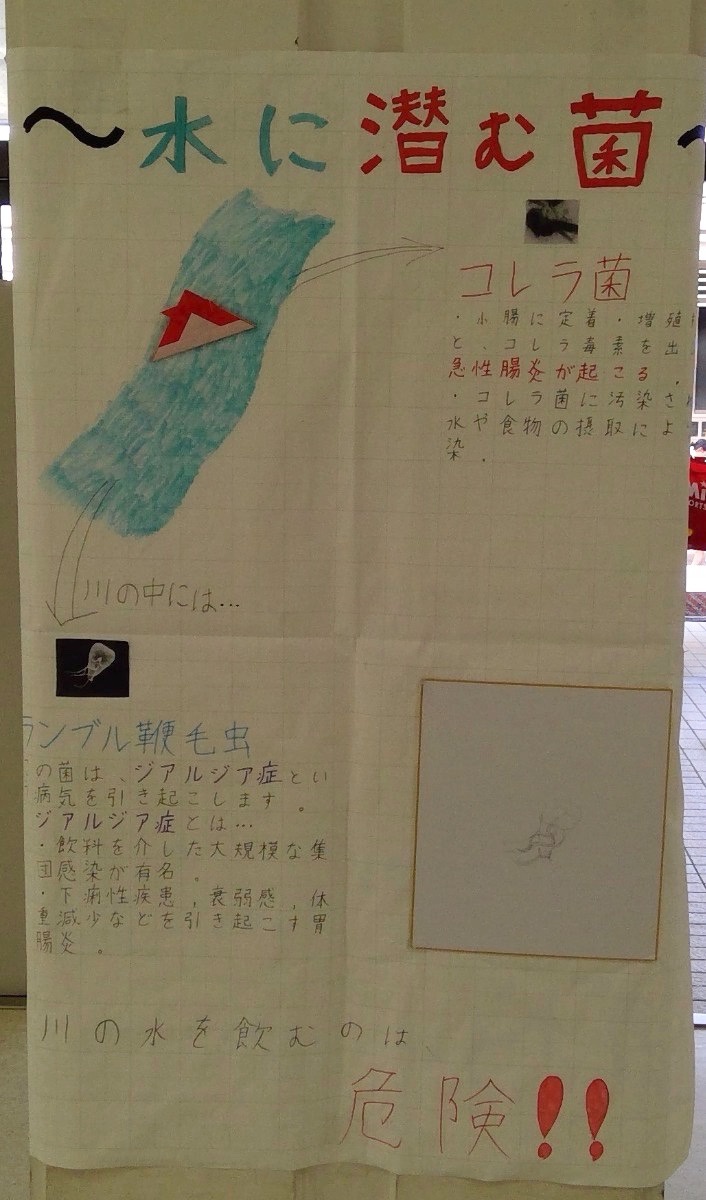 〜水に潜む菌〜
コレラ菌
・小腸に定着・増殖
と、コレラ毒素を出
急性腸炎が起こる。
・コレラ菌に汚染さ
水や食物の摂取によ
染。
川の中には…
ランブル鞭毛虫
の菌は、ジアルジア症とい
病気を引き起こします。
ジアルジア症とは…
・飲料を介した大規模な集
団感染が有名。
・下痢性疾患,衰弱感,体
重減少などを引き起こす胃
腸炎。
川の水を飲むのは
危険!!